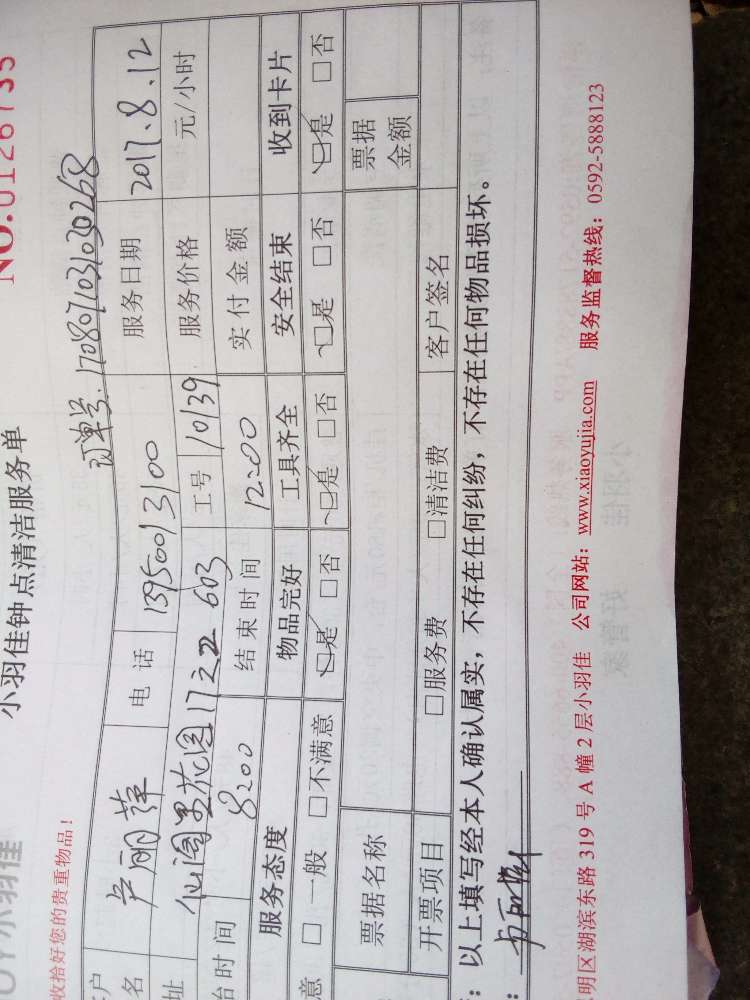 小羽佳钟点清洁服务单
NO.0126735
收拾好您的贵重物品！
订单号：1708071031030268
户名 卢丽萍 电话 13950013100 服务日期 2017.8.12
址 仙阁里花园17之2 603 工号 10139 服务价格 元/小时
时间 8:00 结束时间 12:00 实付金额
服务态度 物品完好 工具齐全 安全结束 收到卡片
意 □一般 □不满意 □是 □否 □是 □否 □是 □否 □是 □否
票据名称 票据金额
开票项目 □服务费 □清洁费 客户签名
：以上填写经本人确认属实，不存在任何纠纷，不存在任何物品损坏。
明区湖滨东路 319 号 A 幢 2 层小羽佳 公司网站：www.xiaoyujia.com 服务监督热线：0592-5888123